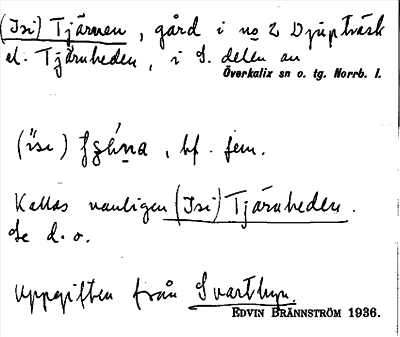 (Isi) Tjärnen, gård i no 2 Djupträsk
el. Tjärnheden, i S. delen av
Överkalix sn o. tg. Norrb. l.
(ịsi) , bf. fem.
Kallas vanligen (Isi) Tjärnheden.
Se d. o.
Uppgiften från Svartbyn.
EDVIN BRÄNNSTRÖM 1936.